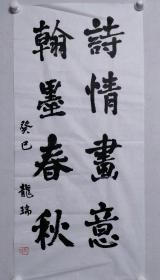 詩情畫意
翰墨春秋
癸巳 龍瑞